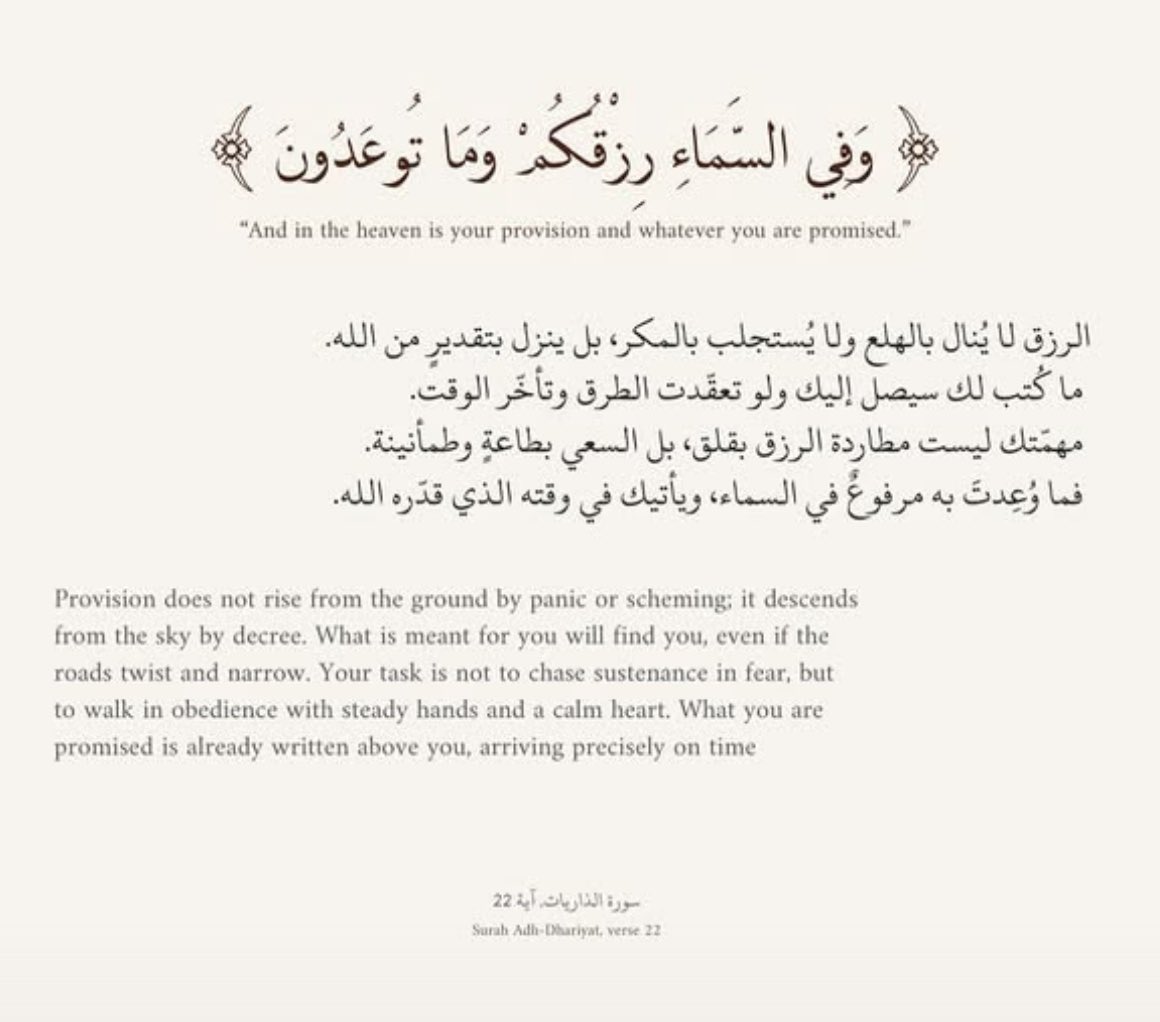 ﴿ وَفِي السَّمَاءِ رِزْقُكُمْ وَمَا تُوعَدُونَ ﴾
“And in the heaven is your provision and whatever you are promised.”
الرزق لا يُنال بالهلع ولا يُستجلب بالمكر، بل ينزل بتقديرٍ من الله.
ما كُتب لك سيصل إليك ولو تعقّدت الطرق وتأخّر الوقت.
مهمّتك ليست مطاردة الرزق بقلق، بل السعي بطاعةٍ وطمأنينة.
فما وُعِدتَ به مرفوعٌ في السماء، ويأتيك في وقته الذي قدّره الله.
Provision does not rise from the ground by panic or scheming; it descends
from the sky by decree. What is meant for you will find you, even if the
roads twist and narrow. Your task is not to chase sustenance in fear, but
to walk in obedience with steady hands and a calm heart. What you are
promised is already written above you, arriving precisely on time
سورة الذاريات، آية 22
Surah Adh-Dhariyat, verse 22